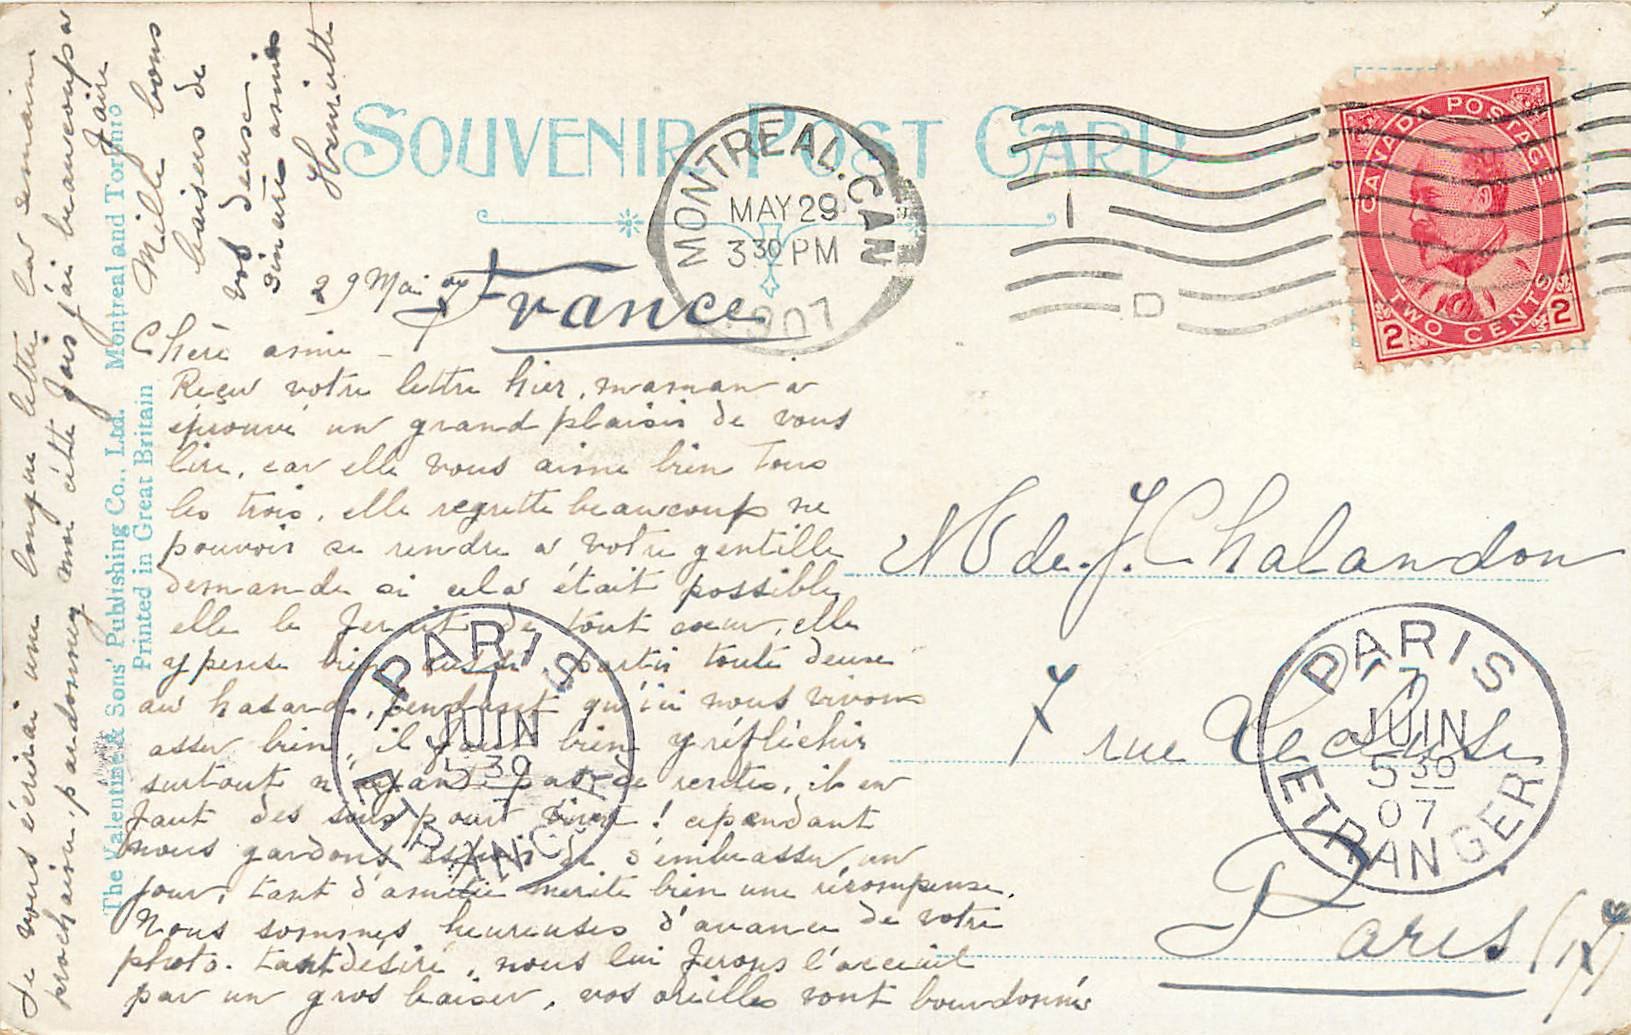 SOUVENIR POST CARD
MONTREAL. CAN
MAY 29
3 30 PM
1907
1
D
CANADA POSTAGE
TWO CENTS
2 2
France
29 Mai 07
Chère amie -
Reçu votre lettre hier, maman a
éprouvé un grand plaisir de vous
lire, car elle vous aime bien tous
les trois, elle regrette beaucoup ne
pouvoir se rendre a votre gentille
demande si cela était possible
elle le ferait de tout cœur, elle
y pense bien aussi partir toute deuse
au hasard, pendant qu'ici nous vivons
asser bien, il faut bien y réfléchir
surtout n'ayant pas de rentes, il en
faut des sous pour vivre! cependant
nous gardons espoir de s'embrasser un
jour, tant d'amitié merite bien une récompense.
Nous sommes heureuses d'avance de votre
photo. tant désiré, nous lui ferons l'acceuil
par un gros baiser, vos oreilles vont bourdonné
Je vous écrirai une longue lettre la semaine
prochaine, pardonnez moi cette fois j'ai beaucoup a
faire
Mille bons
baisers de
vos deuse
sincère amies
Henriette
The Valentine & Sons' Publishing Co., Ltd. Montreal and Toronto
Printed in Great Britain
Mde. J. Chalandon
7 rue Lecluse
Paris (17)
PARIS
7
JUIN
5 30
07
ETRANGER
PARIS
7
JUIN
5 30
07
ETRANGER